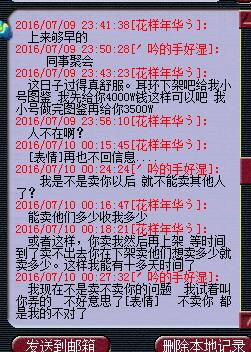 2016/07/09 23:41:38[花样年华ぅ]:
上来够早的
2016/07/09 23:50:28[ˊ吟的手好湿]:
同事聚会
2016/07/09 23:43:23[花样年华ぅ]:
这日子过得真舒服。真坏下架吧给我小
号图鉴 我先给你4000W钱这样可以吧 我小
号做元图鉴再给你3500W
2016/07/09 23:56:10[花样年华ぅ]:
人不在啊？
2016/07/10 00:15:45[花样年华ぅ]:
[表情]再也不回信息....
2016/07/10 00:24:24[ˊ吟的手好湿]:
我是不是卖你以后 就不能卖其他人
了？
2016/07/10 00:16:47[花样年华ぅ]:
能卖他们多少收我多少
2016/07/10 00:18:21[花样年华ぅ]:
或者这样，你卖我然后再上架 等时间
到了卖不出去你在下架拿他们想卖多少就
卖多少。这样我能有一多天时间了
2016/07/10 00:27:32[ˊ吟的手好湿]:
我现在不是卖不卖你的问题 我试着叫
你弄的 不好意思了[表情] 不卖你 都
是我的不对了
发送到邮箱
删除本地记录